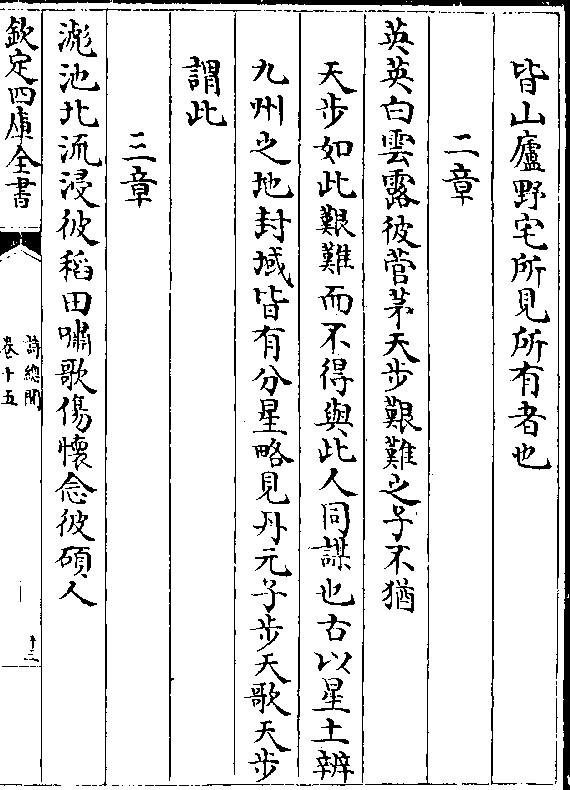 皆山廬野宅所見所有者也
二章
英英白雲露彼菅茅天步艱難之子不猶
天步如此艱難而不得與此人同謀也古以星土辨
九州之地封域皆有分星略見丹元子步天歌天步
謂此
三章
滮池北流浸彼稻田嘯歌傷懷念彼碩人
欽定四庫全書
詩總聞
卷十五
十三